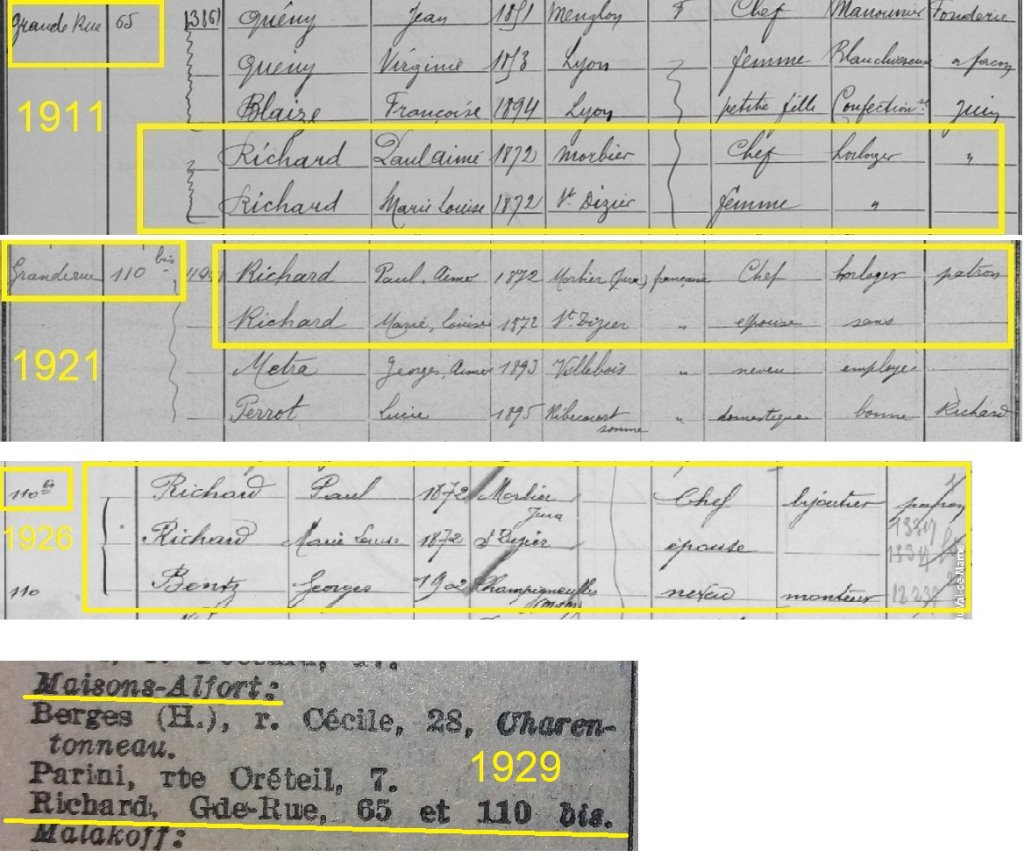 Grande Rue 65 Quény Jean 1851 Menglon f Chef Manouvrier Fonderie
Quény Virginie 1853 Lyon femme Blanchisseuse a façon
1911
Blaise Françoise 1894 Lyon petite fille Confection
Richard Paul Aimé 1872 Morbier Chef horloger "
Richard Marie Louise 1872 St Dizier femme "
Granderue 110 bis Richard Paul, Aimé 1872 Morbier (Jura) française Chef horloger patron
Richard Marie, Louise 1872 St Dizier " épouse sans
1921
Metra Georges, Aimé 1893 Villebois " neveu employé
Perrot Lucie 1895 Ribecourt somme " domestique bonne Richard
110 bis Richard Paul 1872 Morbier Jura Chef bijoutier patron
1926
Richard Marie Louise 1872 St Dizier épouse
110 Bentz Georges 1902 Champigneulles neveu monteur
Maisons-Alfort:
Berges (H.), r. Cécile, 28, Charen-
tonneau.
1929
Parini, rte Créteil, 7.
Richard, Gde-Rue, 65 et 110 bis.
Malakoff: